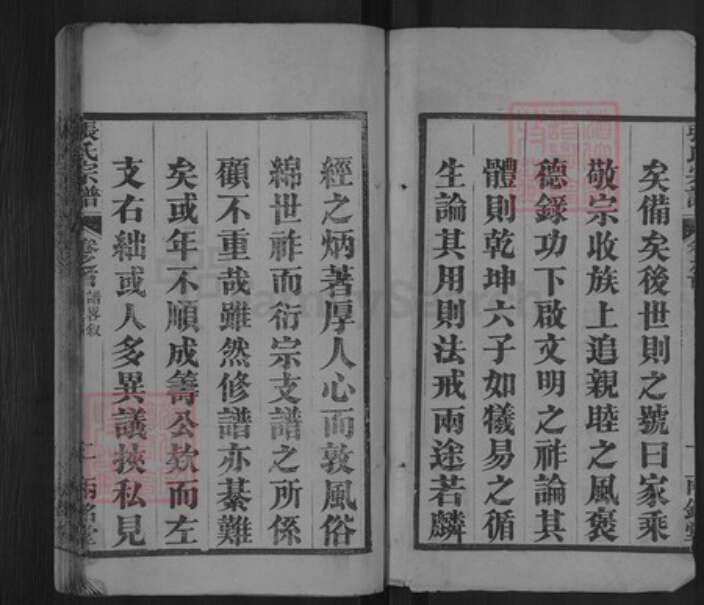 矣備矣後世則之號曰家乘
敬宗收族上追親睦之風褒
德錄功下啟文明之祚論其
體則乾坤六子如犧易之循
生論其用則法戒兩途若麟
經之炳著厚人心而敦風俗
綿世祚而衍宗支譜之所係
顧不重哉雖然修譜亦綦難
矣或年不順成籌公欵而左
支右絀或人多異議挾私見
張氏宗譜 卷之首 譜畧叙 二 兩銘堂